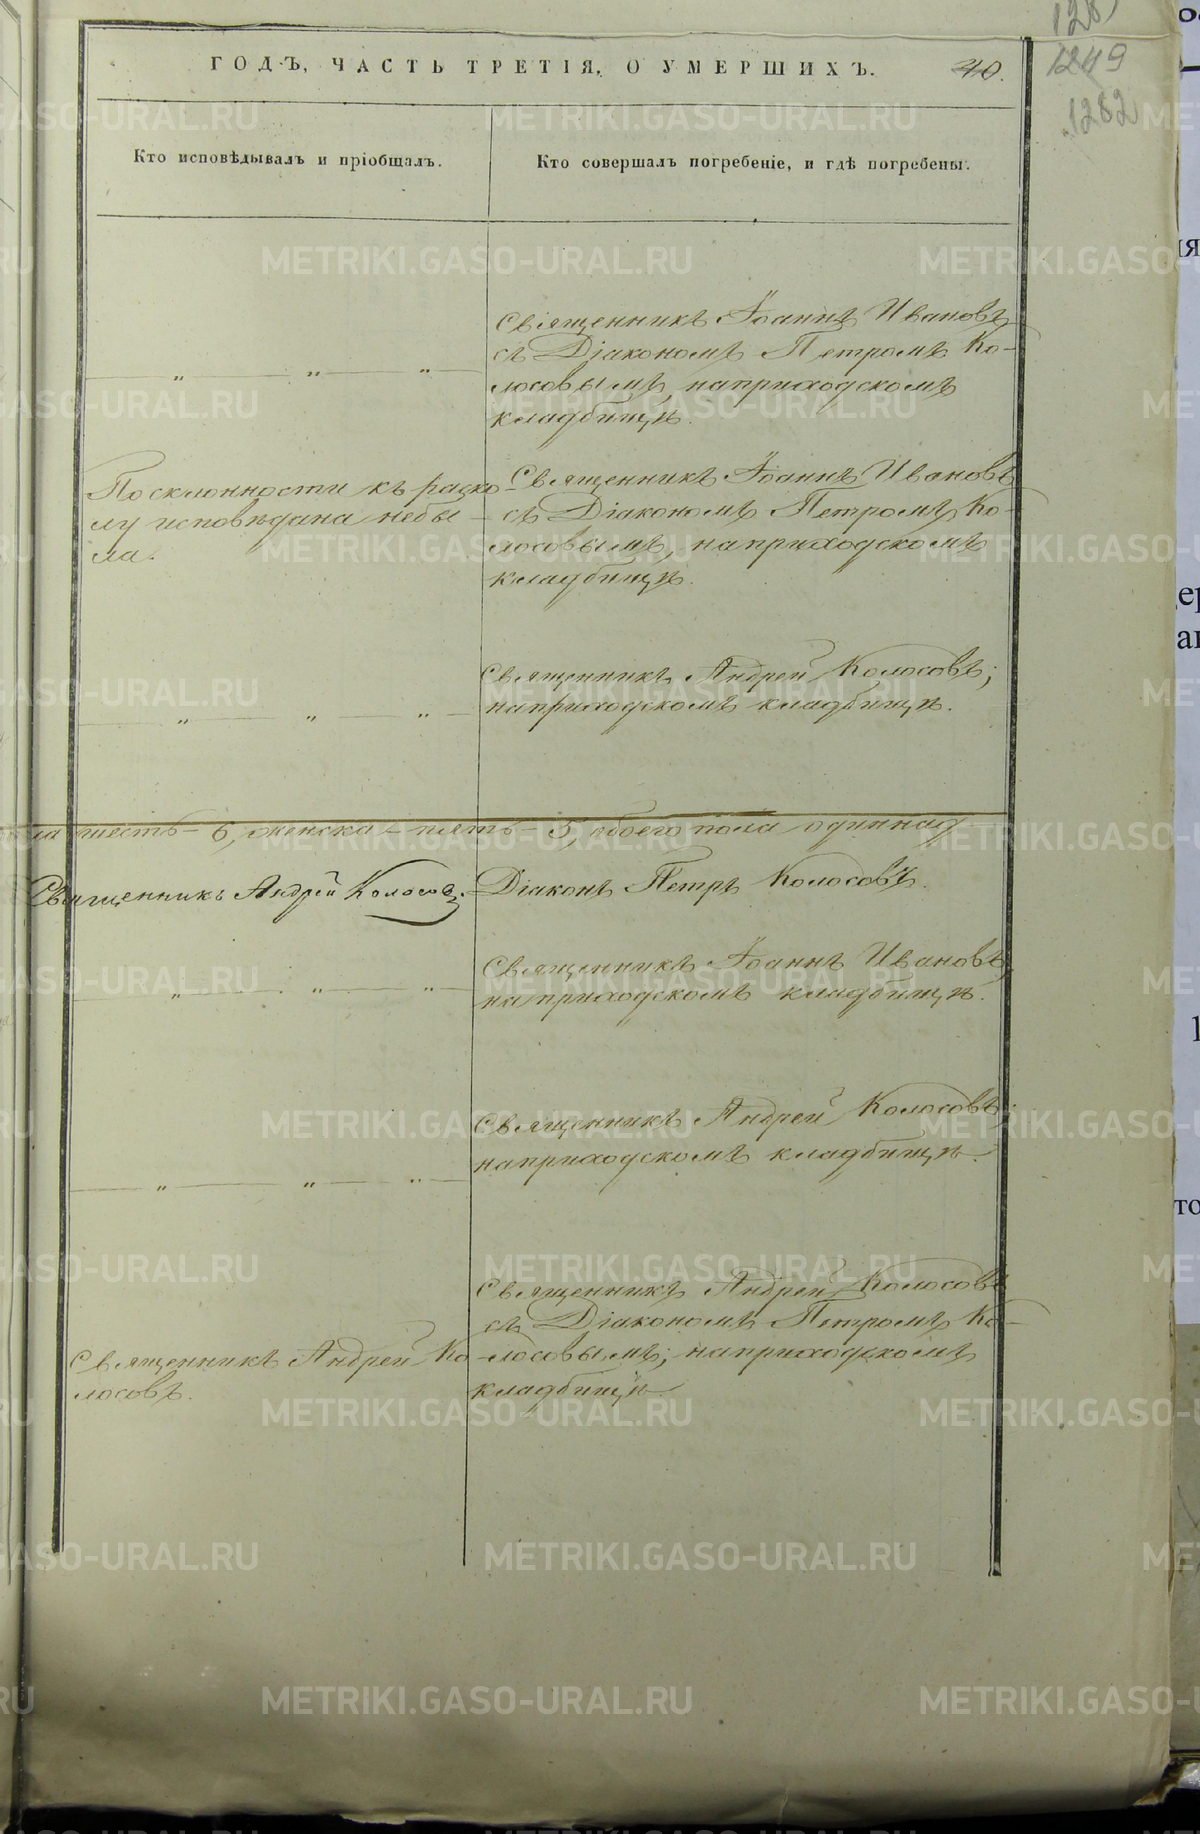 1249
1282
ГОДЪ, ЧАСТЬ ТРЕТІЯ, О УМЕРШИХЪ. 40.
Кто исповѣдывалъ и пріобщалъ.
Кто совершалъ погребеніе, и гдѣ погребены.
Священникъ Іоаннъ Ивановъ
съ Діакономъ Петромъ Ко-
лосовымъ, на приходскомъ
кладбищѣ.
По склонности къ раско-
лу исповѣдана небы-
ла.
Священникъ Іоаннъ Ивановъ
съ Діакономъ Петромъ Ко-
лосовымъ, на приходскомъ
кладбищѣ.
Священникъ Андрей Колосовъ;
на приходскомъ кладбищѣ.
ла шесть - 6, женска - пять - 5, обоего пола одиннад
Священникъ Андрей Колосовъ.
Діаконъ Петръ Колосовъ.
Священникъ Іоаннъ Ивановъ,
на приходскомъ кладбищѣ.
Священникъ Андрей Колосовъ;
на приходскомъ кладбищѣ.
Священникъ Андрей Ко-
лосовъ.
Священникъ Андрей Колосовъ
съ Діакономъ Петромъ Ко-
лосовымъ; на приходскомъ
кладбищѣ.
METRIKI.GASO-URAL.RU